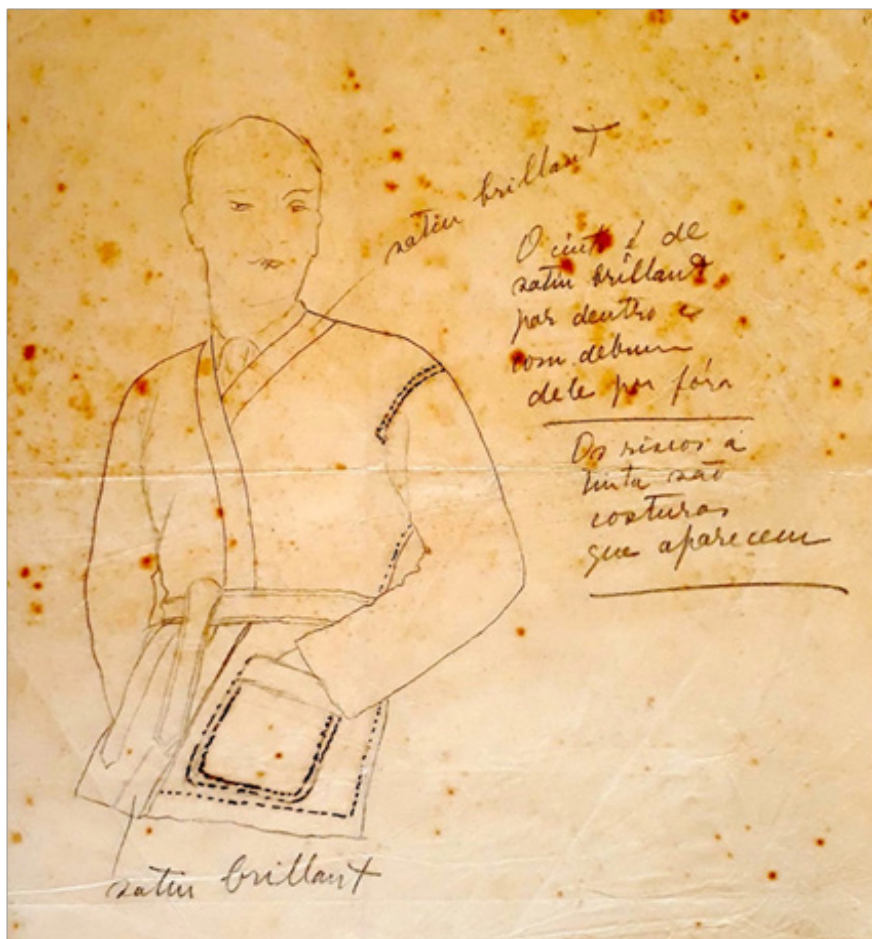 satin brillant
O cinto é de
satin brillant
por dentro e
com debrum
dele por fóra
Os riscos á
tinta são
costuras
que aparecem
satin brillant